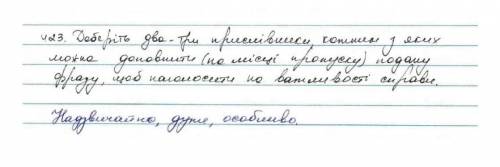 423. Доберіть два-три прислівники, кожним з яких
можна доповнити (на місці пропуску) подану
фразу, щоб наголосити на важливості справи.
Надзвичайно, дуже, особливо.